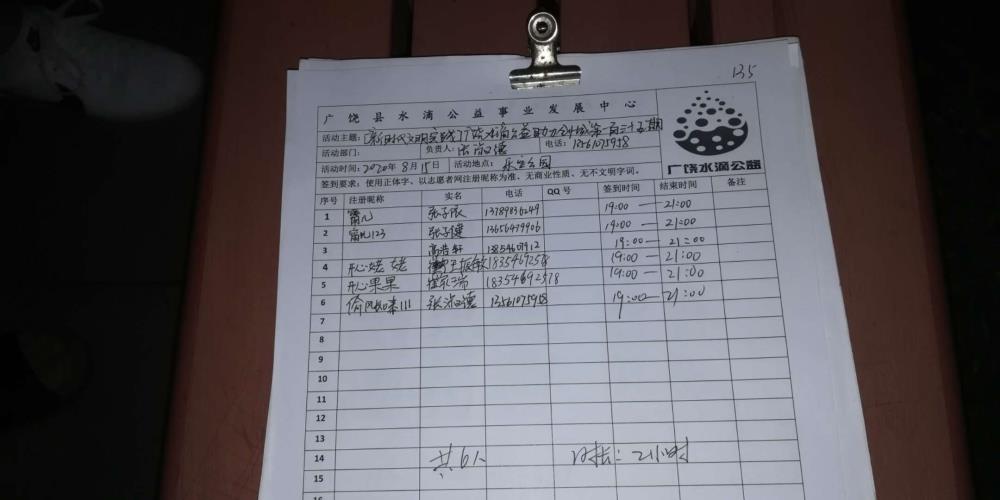 135
广饶县水滴公益事业发展中心
活动主题：新时代文明实践广饶水滴公益 第一百三十五期
活动部门： 负责人：张 德 电话：13561075958
活动时间：2020年8月15日 活动地点：乐安公园
签到要求：使用正体字、以志愿者网注册昵称为准、无商业性质、无不文明字词。
广饶水滴公益
序号 注册昵称 实名 电话 QQ号 签到时间 结束时间 备注
1 张子 13789836249 19:00—21:00
2 123 张子健 13656479906 19:00—21:00
3 高浩轩 19:00—21:00
4 开心姥姥 王振敏 19:00—21:00
5 开心果果 崔 瑞 18354692578 19:00—21:00
6 111 张 德 13561075958 19:00—21:00
7
8
9
10
11
12
13
14 共6人 时长：2小时
15
16